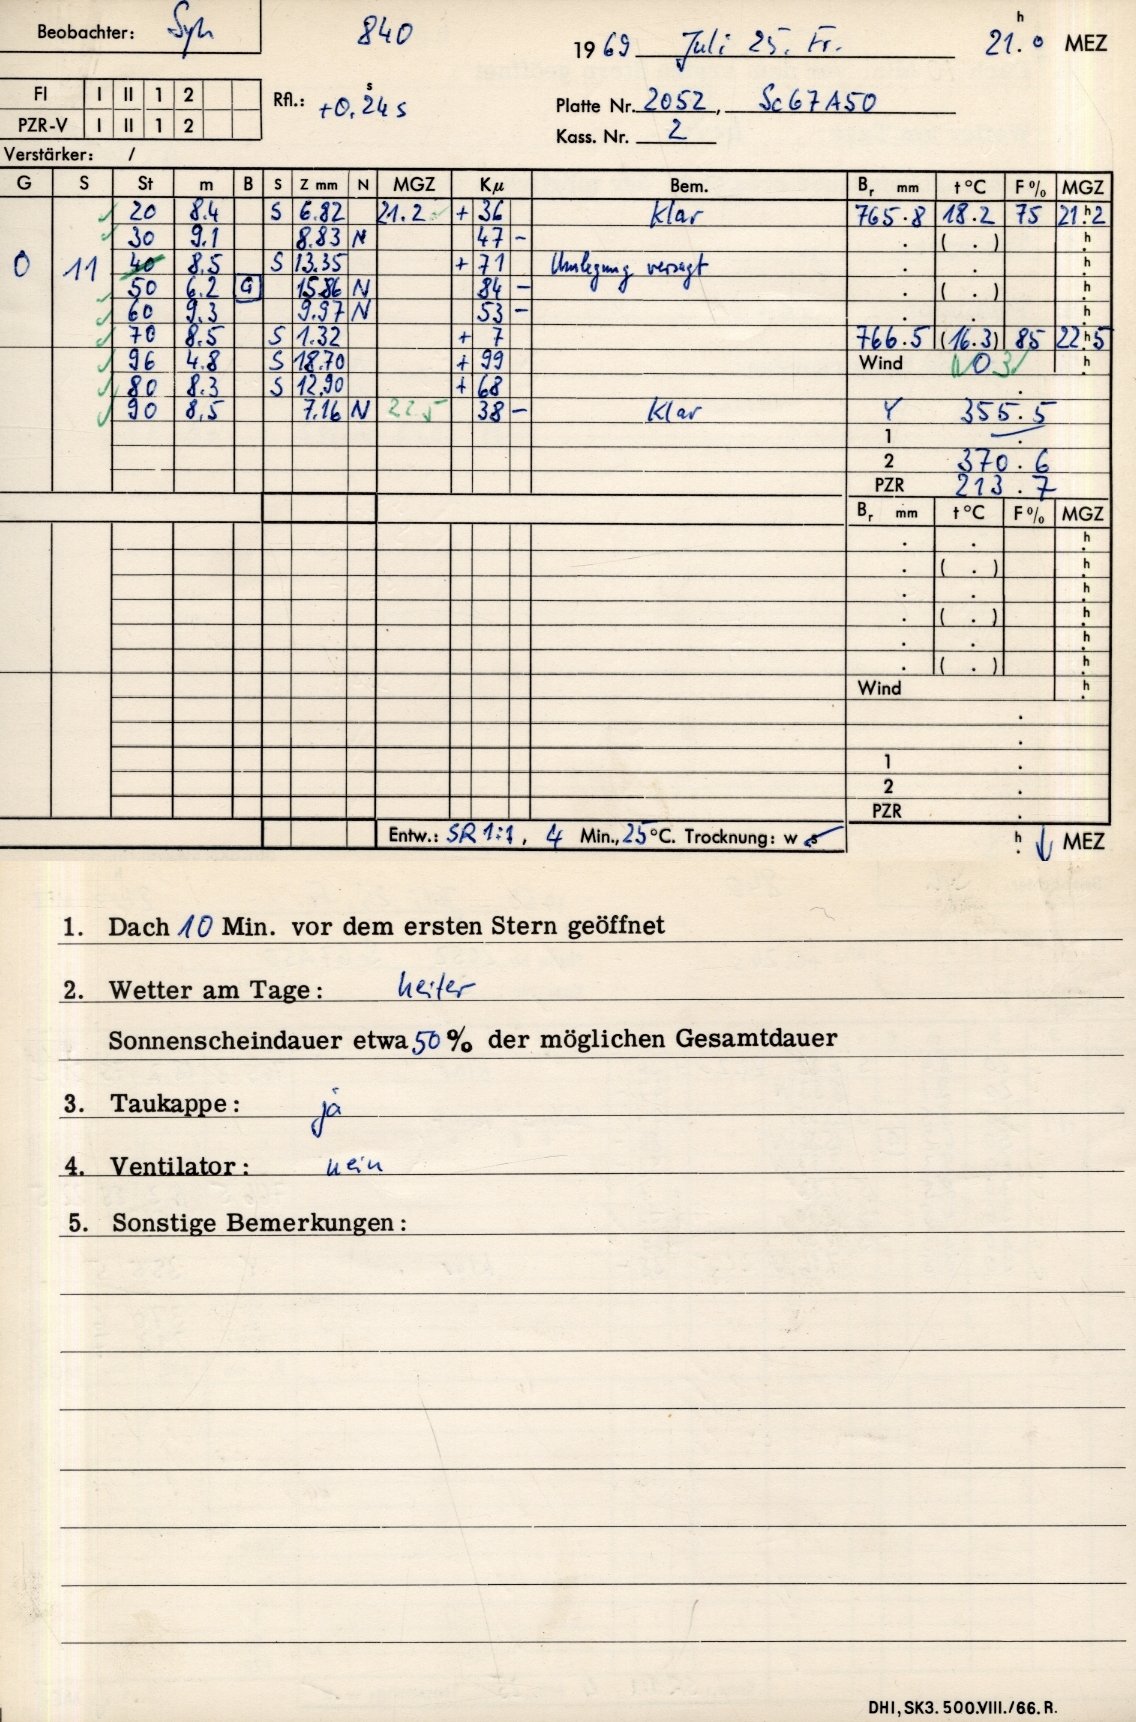 Beobachter: Syh 840 1969 Juli 25. Fr. 21.0 h MEZ
FI I II 1 2 Rfl.: +0.24 s s Platte Nr. 2052, Sc67A50
PZR-V I II 1 2 Kass. Nr. 2
Verstärker: /
G S St m B S Z mm N MGZ Kμ Bem. Br mm t °C F % MGZ
✓ 20 8.4 S 6.82 21.2 + 36 Klar 765.8 18.2 75 21.h2
✓ 30 9.1 8.83 N 47 - . ( . ) h.
0 11 40 8.5 S 13.35 + 71 Umlegung versagt . . h.
✓ 50 6.2 G 15.86 N 84 - . ( . ) h.
✓ 60 9.3 9.97 N 53 - . . h.
✓ 70 8.5 S 1.32 + 7 766.5 (16.3) 85 22.h5
✓ 96 4.8 S 18.70 + 99 Wind NO 3 h.
✓ 80 8.3 S 12.90 + 68 .
✓ 90 8.5 7.16 N 22.5 38 - Klar Y 355.5
1 .
2 370.6
PZR 213.7
Br mm t °C F % MGZ
. . h.
. ( . ) h.
. . h.
. ( . ) h.
. . h.
. ( . ) h.
Wind h.
.
.
1 .
2 .
PZR .
Entw.: SR 1:1, 4 Min., 25 °C. Trocknung: w s h. ↓ MEZ
1. Dach 10 Min. vor dem ersten Stern geöffnet
2. Wetter am Tage: heiter
Sonnenscheindauer etwa 50 % der möglichen Gesamtdauer
3. Taukappe: ja
4. Ventilator: nein
5. Sonstige Bemerkungen:
DHI, SK3. 500.VIII./66. R.